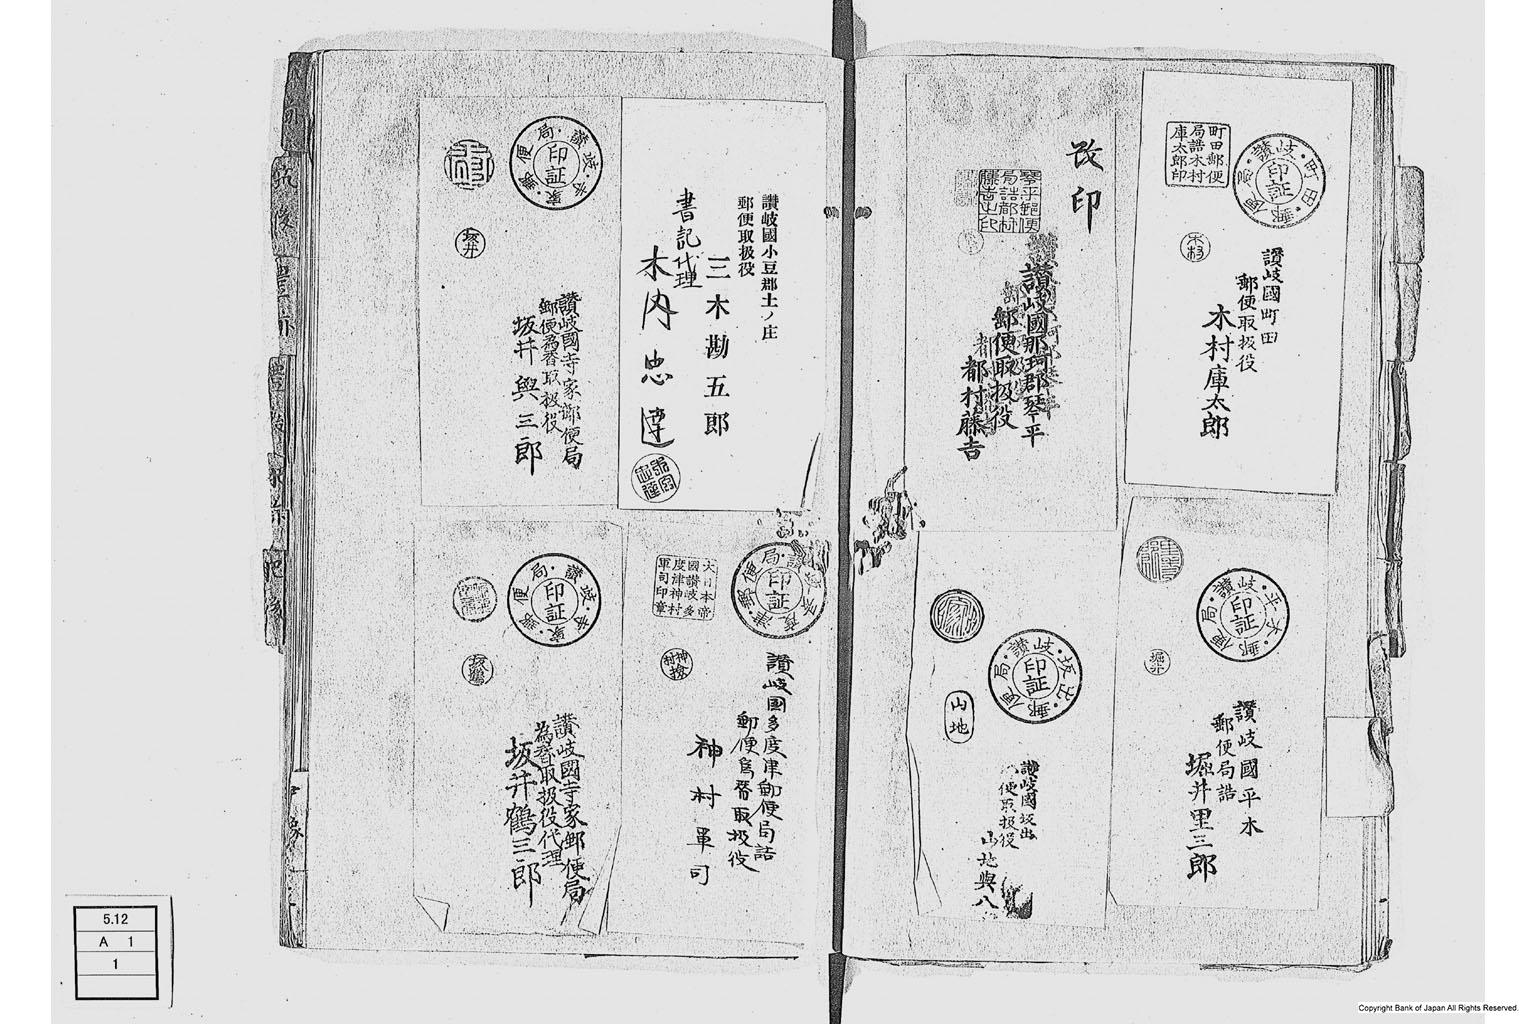 町田郵便
局詰木村
庫太郎印
讃岐・町田・郵便局・
印証
木村
讃岐國町田
郵便取扱役
木村庫太郎
改印
琴平郵便
局詰都村
藤吉之印
讃岐國那珂郡琴平
郵便取扱役
都村藤吉
讃岐・平木・郵便局・
印証
堀井
讃岐國平木
郵便局詰
堀井里三郎
讃岐・坂出・郵便局・
印証
山地
讃岐國坂出
便取扱役
山地與八
讃岐國小豆郡土ノ庄
郵便取扱役
三木勘五郎
書記代理
木内忠達
讃岐・寺家・郵便局・
印証
坂井
讃岐國寺家郵便局
郵便為替取扱役
坂井與三郎
大日本帝
國讃岐多
度津神村
軍司印章
印証
神村
讃岐國多度津郵便局詰
郵便為替取扱役
神村軍司
讃岐・寺家・郵便局・
印証
坂井鶴
讃岐國寺家郵便局
為替取扱役代理
坂井鶴三郎
筑後
豊前
豊後
肥後
5.12
A 1
1
Copyright Bank of Japan All Rights Reserved.